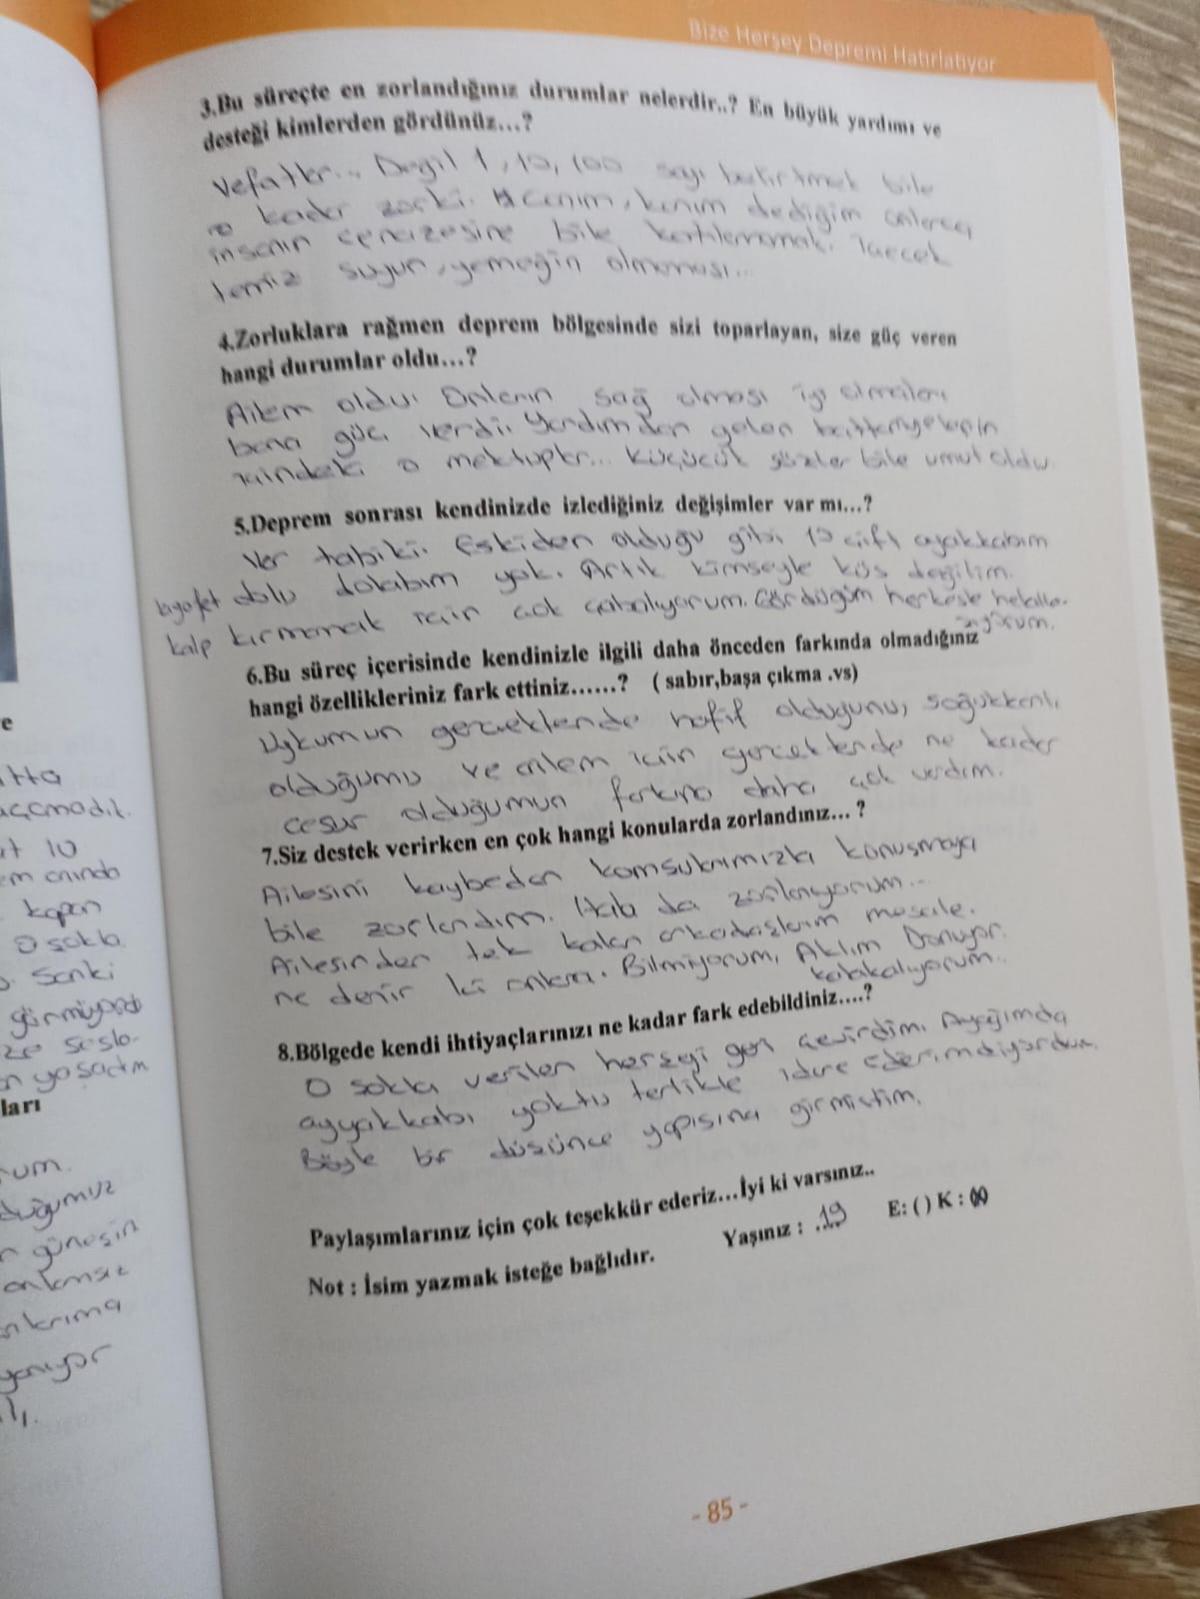 Bize Herşey Depremi Hatırlatıyor
3.Bu süreçte en zorlandığınız durumlar nelerdir..? En büyük yardımı ve
desteği kimlerden gördünüz...?
Vefatlar... Değil 1, 10, 100 sayı belirtmek bile
o kadar zorki. canım, kanım dediğim onlarca
insanın cenazesine bile katılamamak. İçecek
temiz suyun, yemeğin olmaması...
4.Zorluklara rağmen deprem bölgesinde sizi toparlayan, size güç veren
hangi durumlar oldu...?
Ailem oldu. Onların sağ olması iyi olmaları
bana güç verdi. Yardımdan gelen battaniyelerin
içindeki o mektuplar... Küçücük sözler bile umut oldu.
5.Deprem sonrası kendinizde izlediğiniz değişimler var mı...?
Var tabiki. Eskiden olduğu gibi 10 çift ayakkabım
kıyafet dolu dolabım yok. Artık kimseyle küs değilim.
kalp kırmamak için çok çabalıyorum. Gördüğüm herkesle helalla-
şıyorum.
6.Bu süreç içerisinde kendinizle ilgili daha önceden farkında olmadığınız
hangi özellikleriniz fark ettiniz......? ( sabır,başa çıkma .vs)
Uykumun gerçektende hafif olduğunu, soğukkanlı
olduğumu ve ailem için gerçektende ne kadar
cesur olduğumun farkına daha çok vardım.
7.Siz destek verirken en çok hangi konularda zorlandınız... ?
Ailesini kaybeden komşularımızla konuşmaya
bile zorlandım. Hala da zorlanıyorum...
Ailesinden tek kalan arkadaşlarım mesela.
ne denir ki onlara. Bilmiyorum, Aklım Donuyor.
kalakalıyorum...
8.Bölgede kendi ihtiyaçlarınızı ne kadar fark edebildiniz....?
O şokla verilen herşeyi geri çevirdim. Ayağımda
ayyakkabı yoktu terlikle idare ederim diyordum.
Böyle bir düşünce yapısına girmiştim.
Paylaşımlarınız için çok teşekkür ederiz...İyi ki varsınız..
Yaşınız : 19 E: ( ) K : (X)
Not : İsim yazmak isteğe bağlıdır.
- 85 -